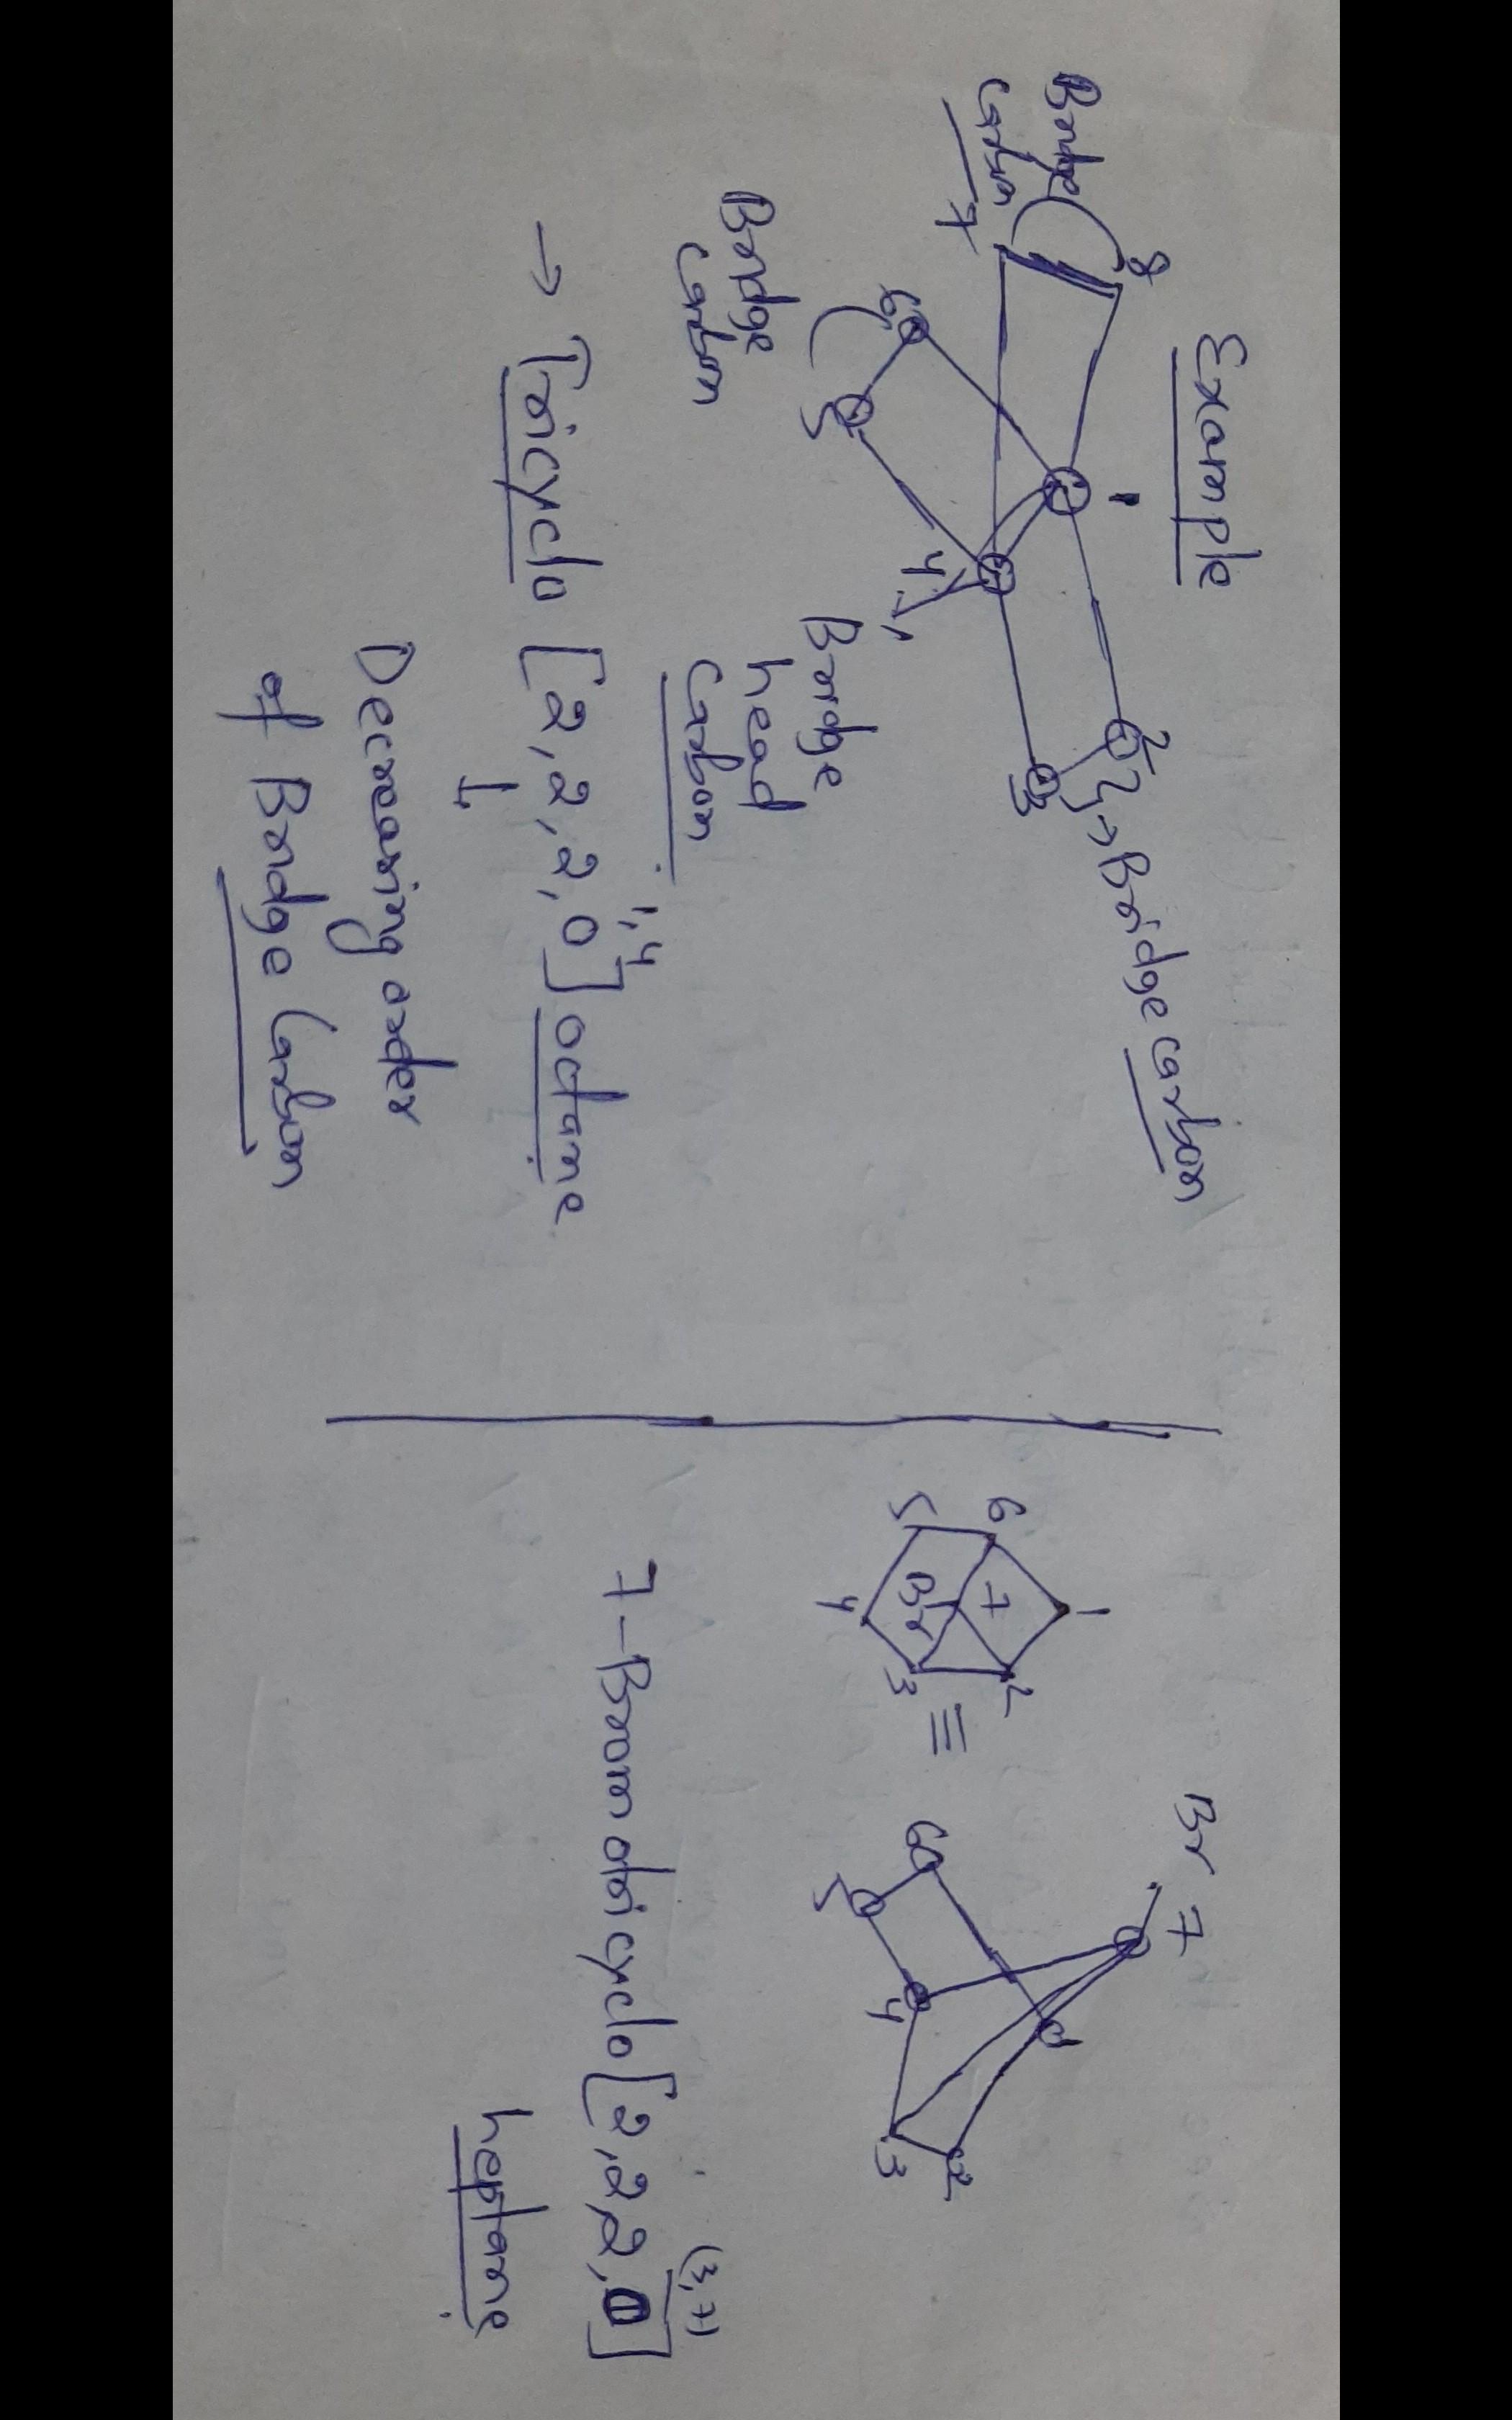 Example
8
1
2
→ Bridge carbon
Bridge
carbon
7
3
6
4
5
Bridge
head
carbon
Bridge
carbon
→ Tricyclo [2,2,2,0]1,4 octane
↓
Decreasing order
of Bridge Carbon
1
6
7
2
Br
5
3
4
≡
Br
7
1
6
2
4
3
5
7-Bromotricyclo[2,2,2,0](3,7)
heptane